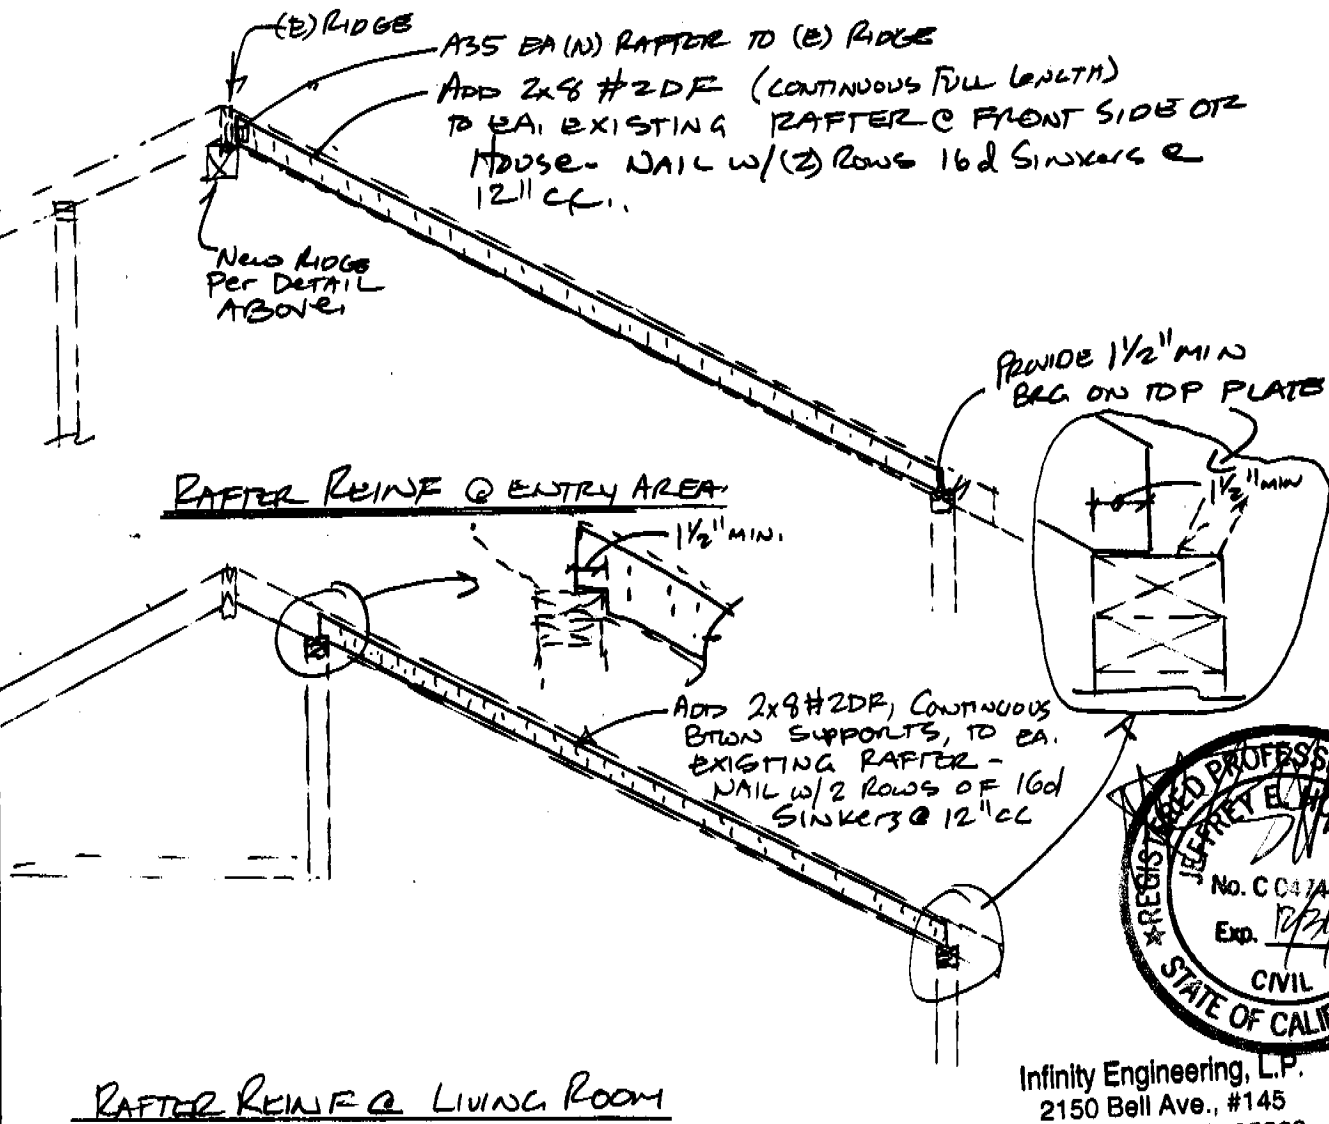 (E) RIDGE
A35 EA (N) RAFTER TO (E) RIDGE
ADD 2x8 #2DF (CONTINUOUS FULL LENGTH)
TO EA. EXISTING RAFTER @ FRONT SIDE OF
HOUSE - NAIL W/(2) ROWS 16d SINKERS @
12" CC.
NEW RIDGE
PER DETAIL
ABOVE.
PROVIDE 1 1/2" MIN
BRG ON TOP PLATE
1 1/2" MIN
RAFTER REINF @ ENTRY AREA.
1 1/2" MIN.
ADD 2x8 #2DF, CONTINUOUS
BTWN SUPPORTS, TO EA.
EXISTING RAFTER -
NAIL W/2 ROWS OF 16d
SINKERS @ 12" CC
REGISTERED PROFESS
JEFFREY E.
No. C 0474
Exp.
CIVIL
STATE OF CALIF
RAFTER REINF @ LIVING ROOM
Infinity Engineering, L.P.
2150 Bell Ave., #145